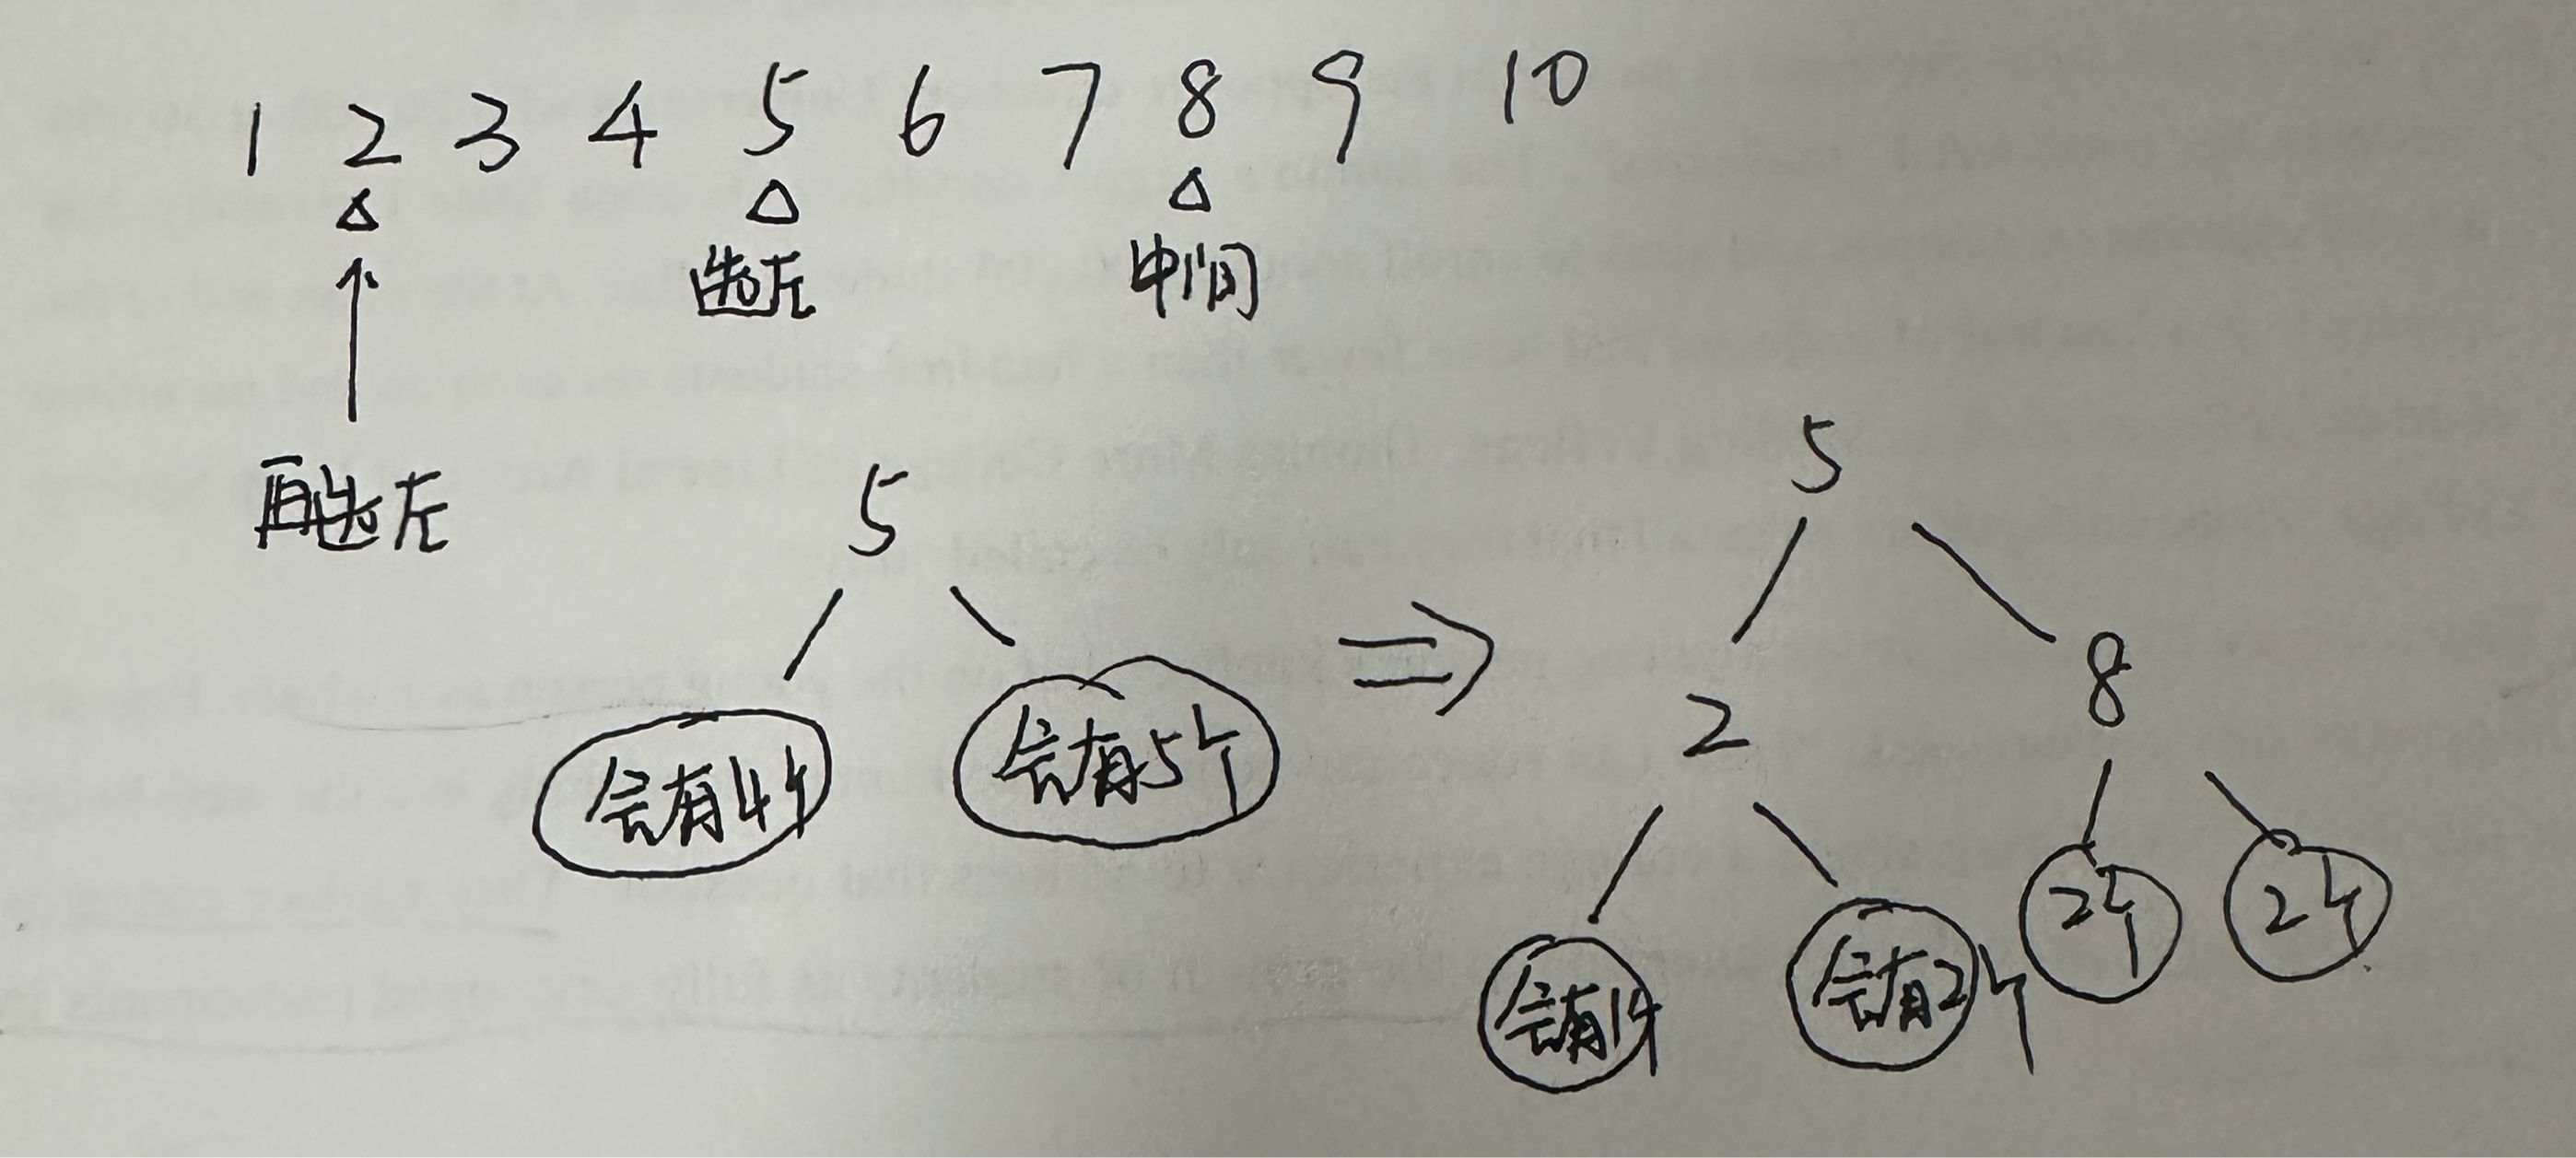 1 2 3 4 5 6 7 8 9 10
选左 中间
再选左
5
会有4个 会有5个
5
2 8
会有1个 会有2个 2个 2个